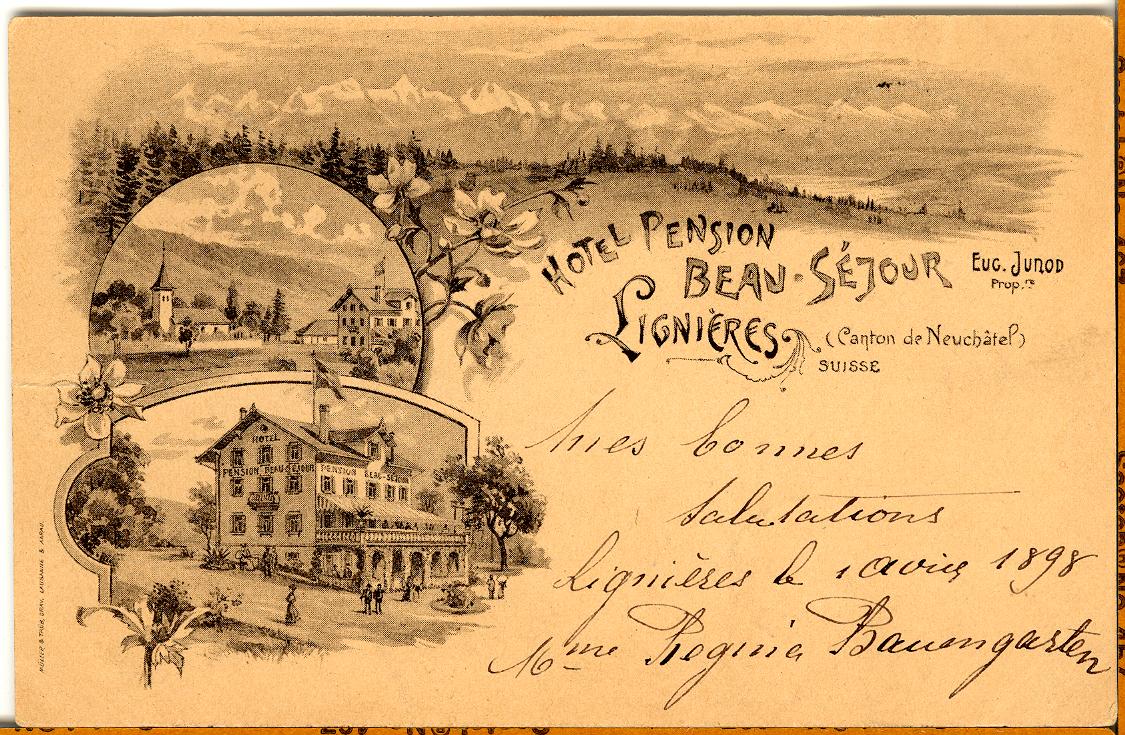 HOTEL PENSION
BEAU-SÉJOUR
EUG. JUNOD
Prop.re
LIGNIÈRES
(Canton de Neuchâtel)
SUISSE
HOTEL
PENSION BEAU-SÉJOUR PENSION BEAU-SÉJOUR
Mes bonnes
Salutations
Lignières le 1 avril 1898
Mme Regina Bauemgarten
MÜLLER & TRÜB, GRAV. LAUSANNE & AARAU.